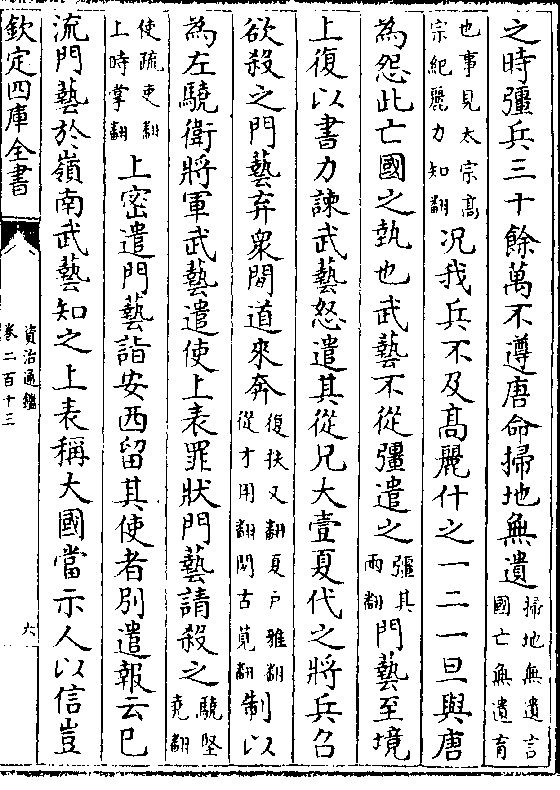 之時彊兵三十餘萬不遵唐命掃地無遺掃地無遺言國亡無遺育
也事見太宗高宗紀麗力知翻况我兵不及高麗什之一二一旦與唐
為怨此亡國之埶也武藝不從彊遣之彊其兩翻門藝至境
上復以書力諫武藝怒遣其從兄大壹夏代之將兵召
欲殺之門藝弃衆間道來奔復扶又翻夏戶雅翻從才用翻間古莧翻制以
為左驍衛將軍武藝遣使上表罪狀門藝請殺之驍堅堯翻
使疏吏翻上時掌翻上密遣門藝詣安西留其使者别遣報云已
流門藝於嶺南武藝知之上表稱大國當示人以信豈
欽定四庫全書
資治通鑑
卷二百十三
六